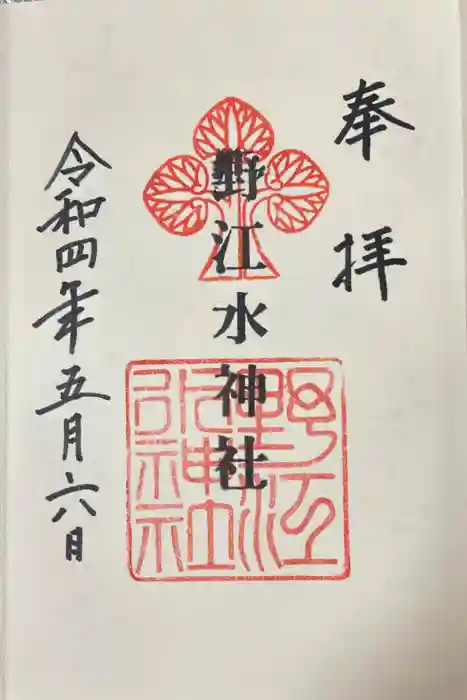 奉拝
野江水神社
野江水神社
令和四年五月六日